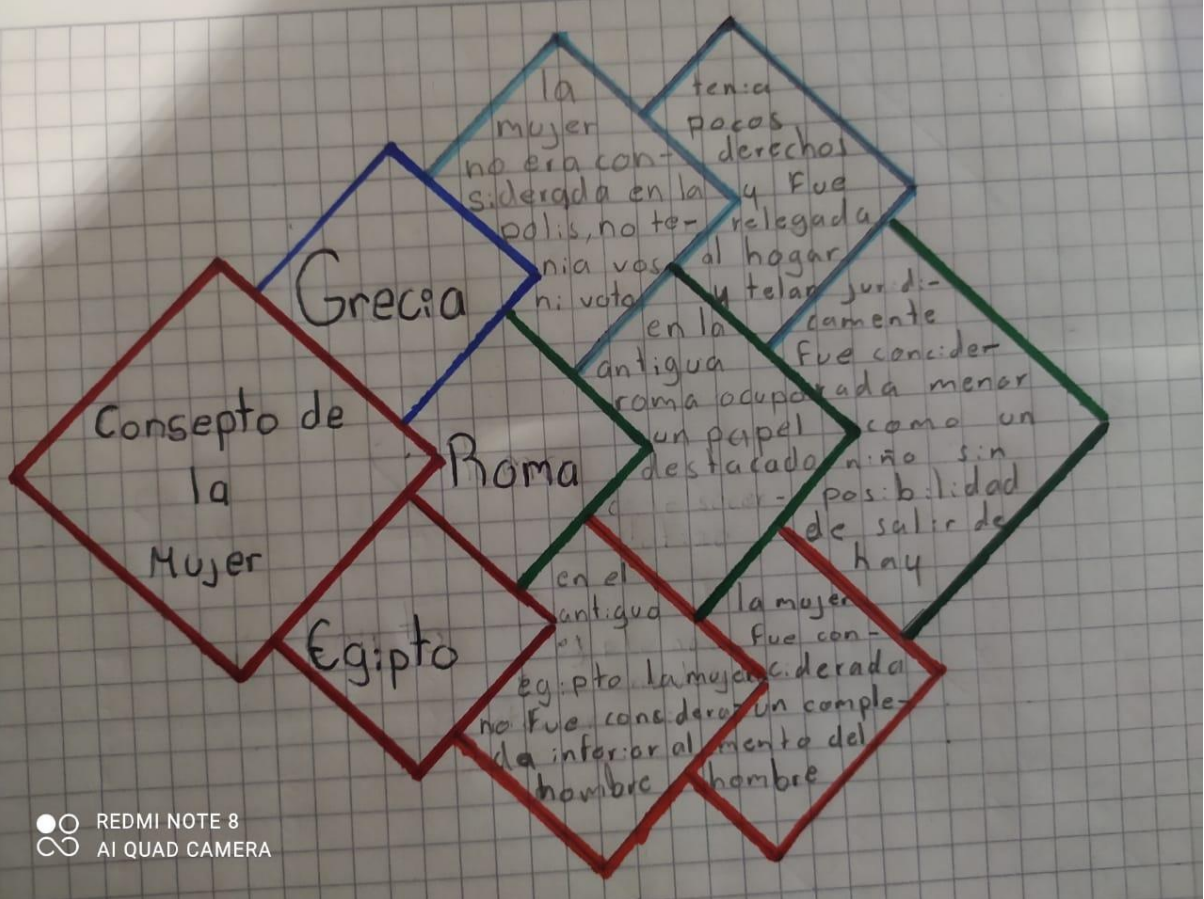 Consepto de
la
Mujer
Grecia
la
mujer
no era con-
siderada en la
polis, no te-
nia vos
ni voto
tenia
pocos
derechos
y Fue
relegada
al hogar
y telar
Roma
en la
antigua
roma ocupo
un papel
destacado
juridi-
camente
fue concider-
rada menor
como un
niño sin
posibilidad
de salir de
hay
Egipto
en el
antiguo
egipto la mujer
no Fue considera-
da inferior al
hombre
la mujer
fue con-
ciderada
un comple-
mento del
hombre
REDMI NOTE 8
AI QUAD CAMERA